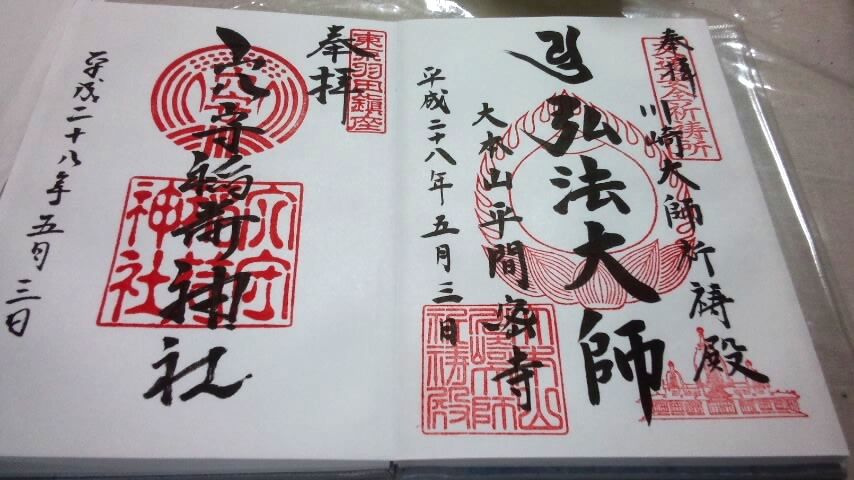 奉拝
交通安全祈祷所
川崎大師祈祷殿
弘法大師
大本山平間密寺
平成二十八年五月三日
大本山川崎大師祈祷殿
東京羽田鎮座
奉拝
穴守稲荷神社
穴守稲荷神社
平成二十八年五月三日